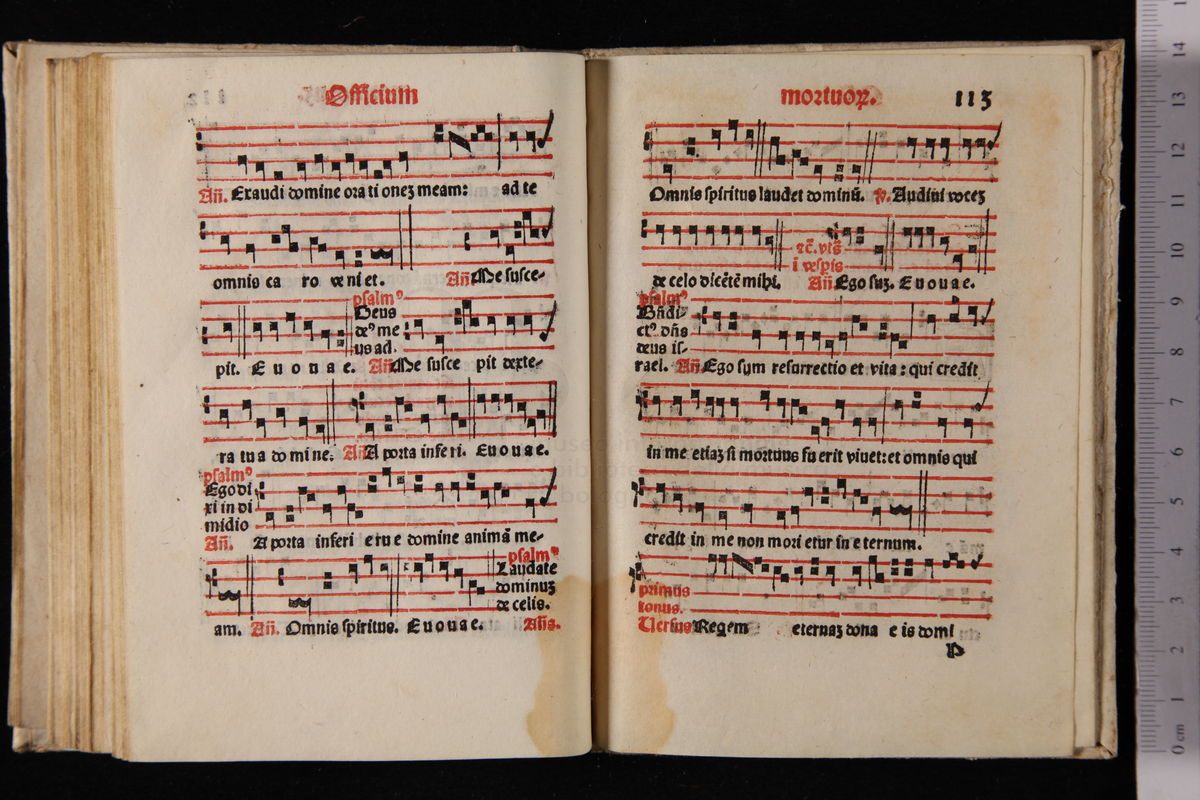 Officium
Añ. Exaudi domine ora ti onez meam: ad te
omnis ca ro ve ni et. Añ. Me susce-
psalmꝰ
Deus
deꝰ me
us ad.
pit. E u o u a e. Añ. Me susce pit dexte-
ra tua do mi ne: Añ. A porta infe ri. Euouae.
psalmꝰ
Ego di
xi in di
midio
Añ. A porta inferi erue domine animã me-
psalmꝰ
Laudate
dominuz
de celis.
am. Añ. Omnis spiritus. Euouae. Alis.
mortuoꝝ. 113
Omnis spiritus laudet dominũ. ℣. Audiui vocez
rc̃. vts̃
i vespis
de celo dicẽtẽ mihi. Añ Ego suz. Euouae.
psalmꝰ
Bñdi-
ctꝰ dñs
deus is-
rael. Añ. Ego sum resurrectio et vita: qui credit
in me etiaz si mortuus fu erit viuet: et omnis qui
credit in me non mori etur in e ternum.
primus
tonus.
Uersus Regem eternaz dona e is domi
P
14
13
12
11
10
9
8
7
6
5
4
3
2
1
0 cm